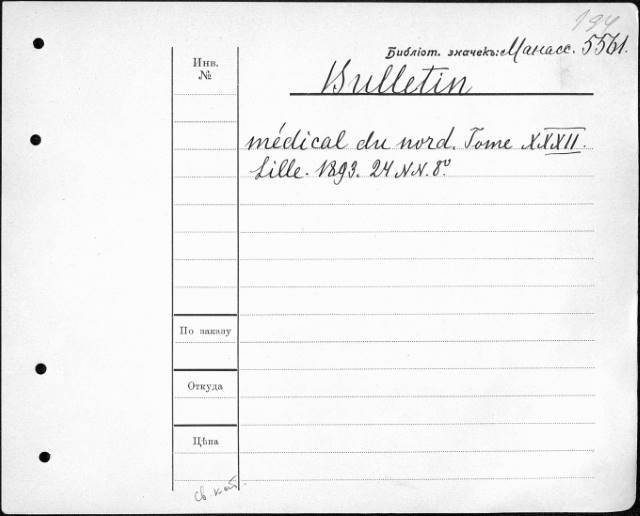 194
Библіот. значекъ: Манасс. 5561.
Инв.
№
Bulletin
médical du nord. Tome XXXII.
Lille. 1893. 24 NN. 8º.
По заказу
Откуда
Цѣна
Св. кат.